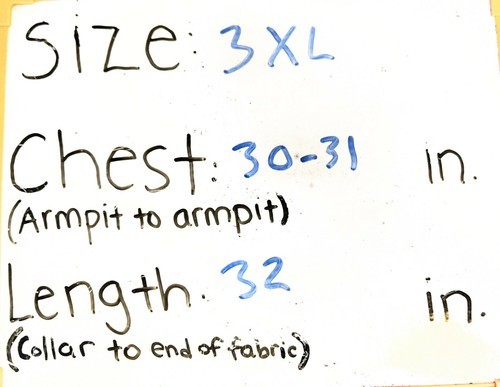 Size: 3XL
Chest: 30-31 in.
(Armpit to armpit)
Length. 32 in.
(Collar to end of fabric)